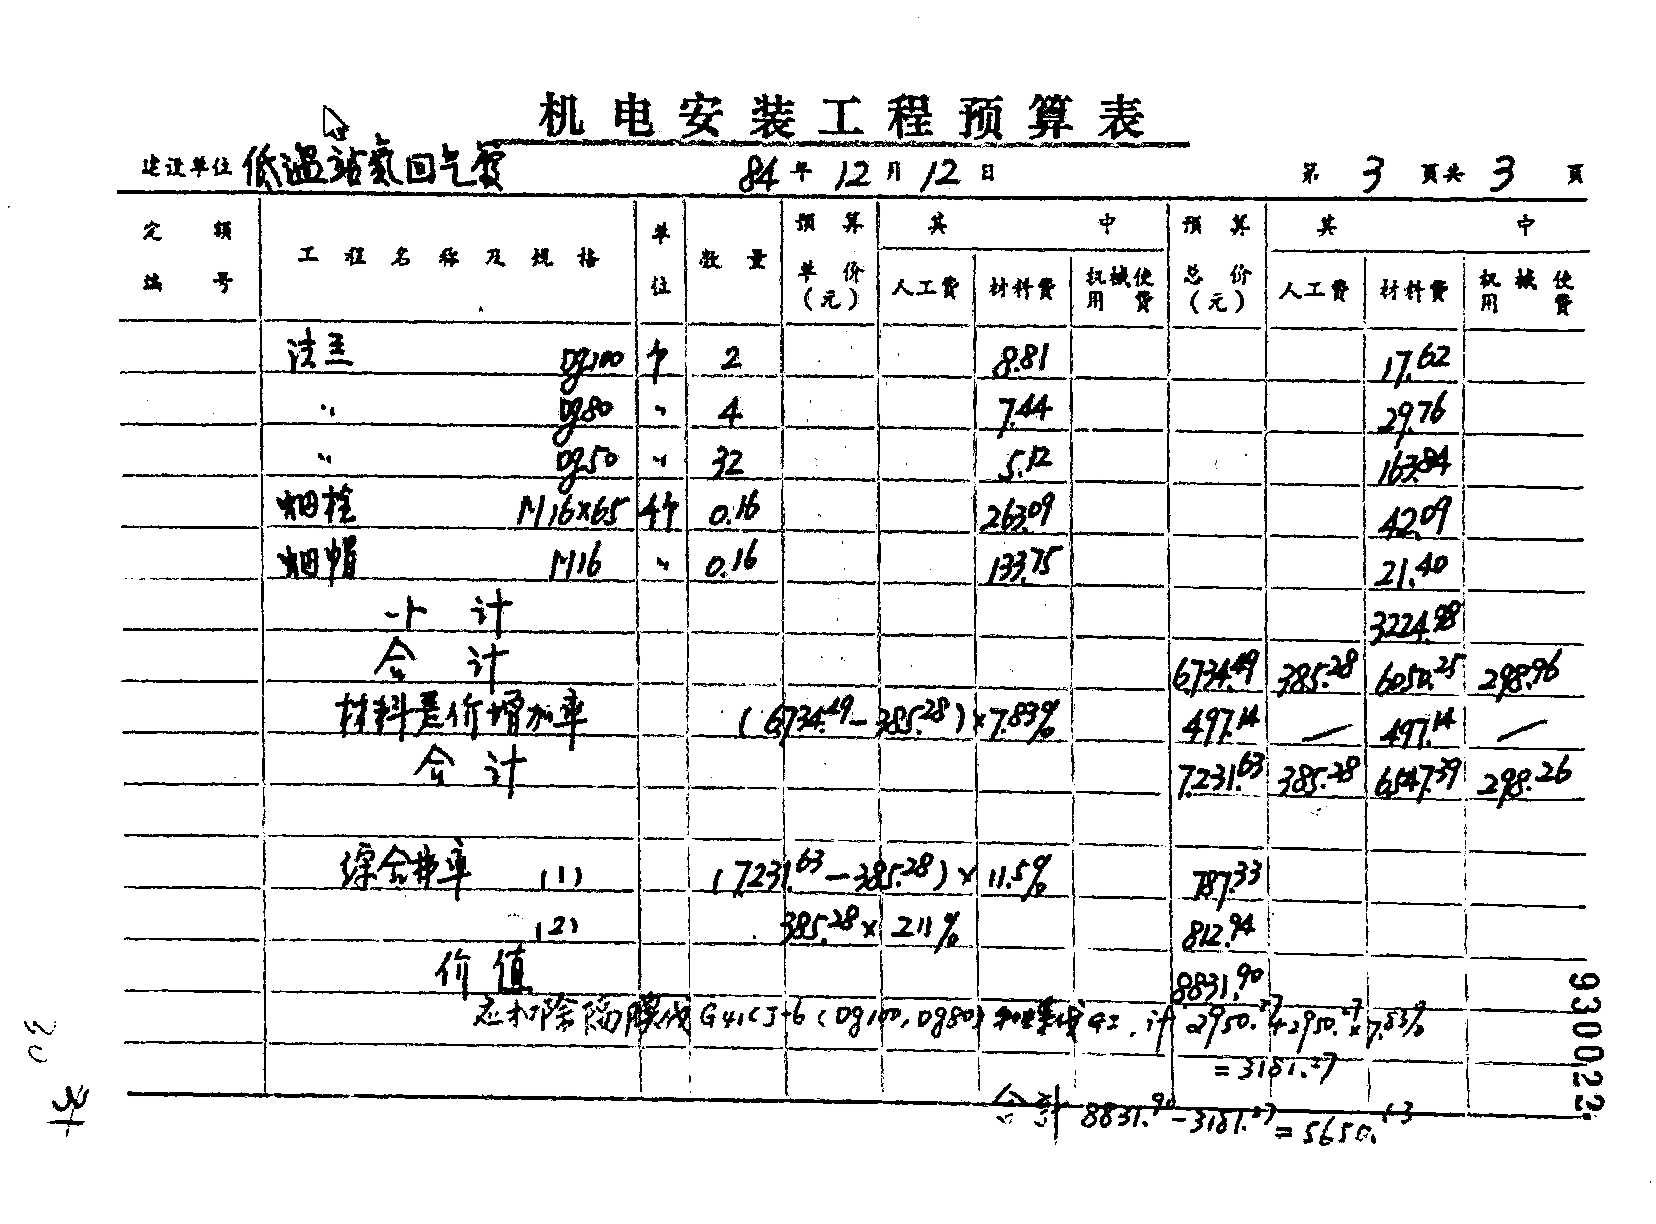 机电安装工程预算表
建设单位 低温站氮回气管 84年12月12日 第3页共3页
定额编号 工程名称及规格 单位 数量 预算单价(元) 其中 预算总价(元) 其中
人工费 材料费 机械使用费 人工费 材料费 机械使用费
法兰 Dg100 个 2 8.81 17.62
〃 Dg80 〃 4 7.44 29.76
〃 Dg50 〃 32 5.12 163.84
M16×65 0.16 263.09 42.09
M16 〃 0.16 133.75 21.40
小计 3224.98
合计 6734.49 385.28 6050.25 298.96
材料差价增加率 (6734.49-385.28)×7.83% 497.14 — 497.14 —
合计 7231.63 385.28 6547.39 298.26
综合费率 (1) (7231.63-385.28)×11.5% 787.33
(2) 385.28×211% 812.94
价值 8831.90
应扣除隔膜阀G41CJ-6(Dg100,Dg80) 计 2950.27+2950.27×7.83%
=3181.27
合计 8831.90-3181.27=5650.63
930022
30